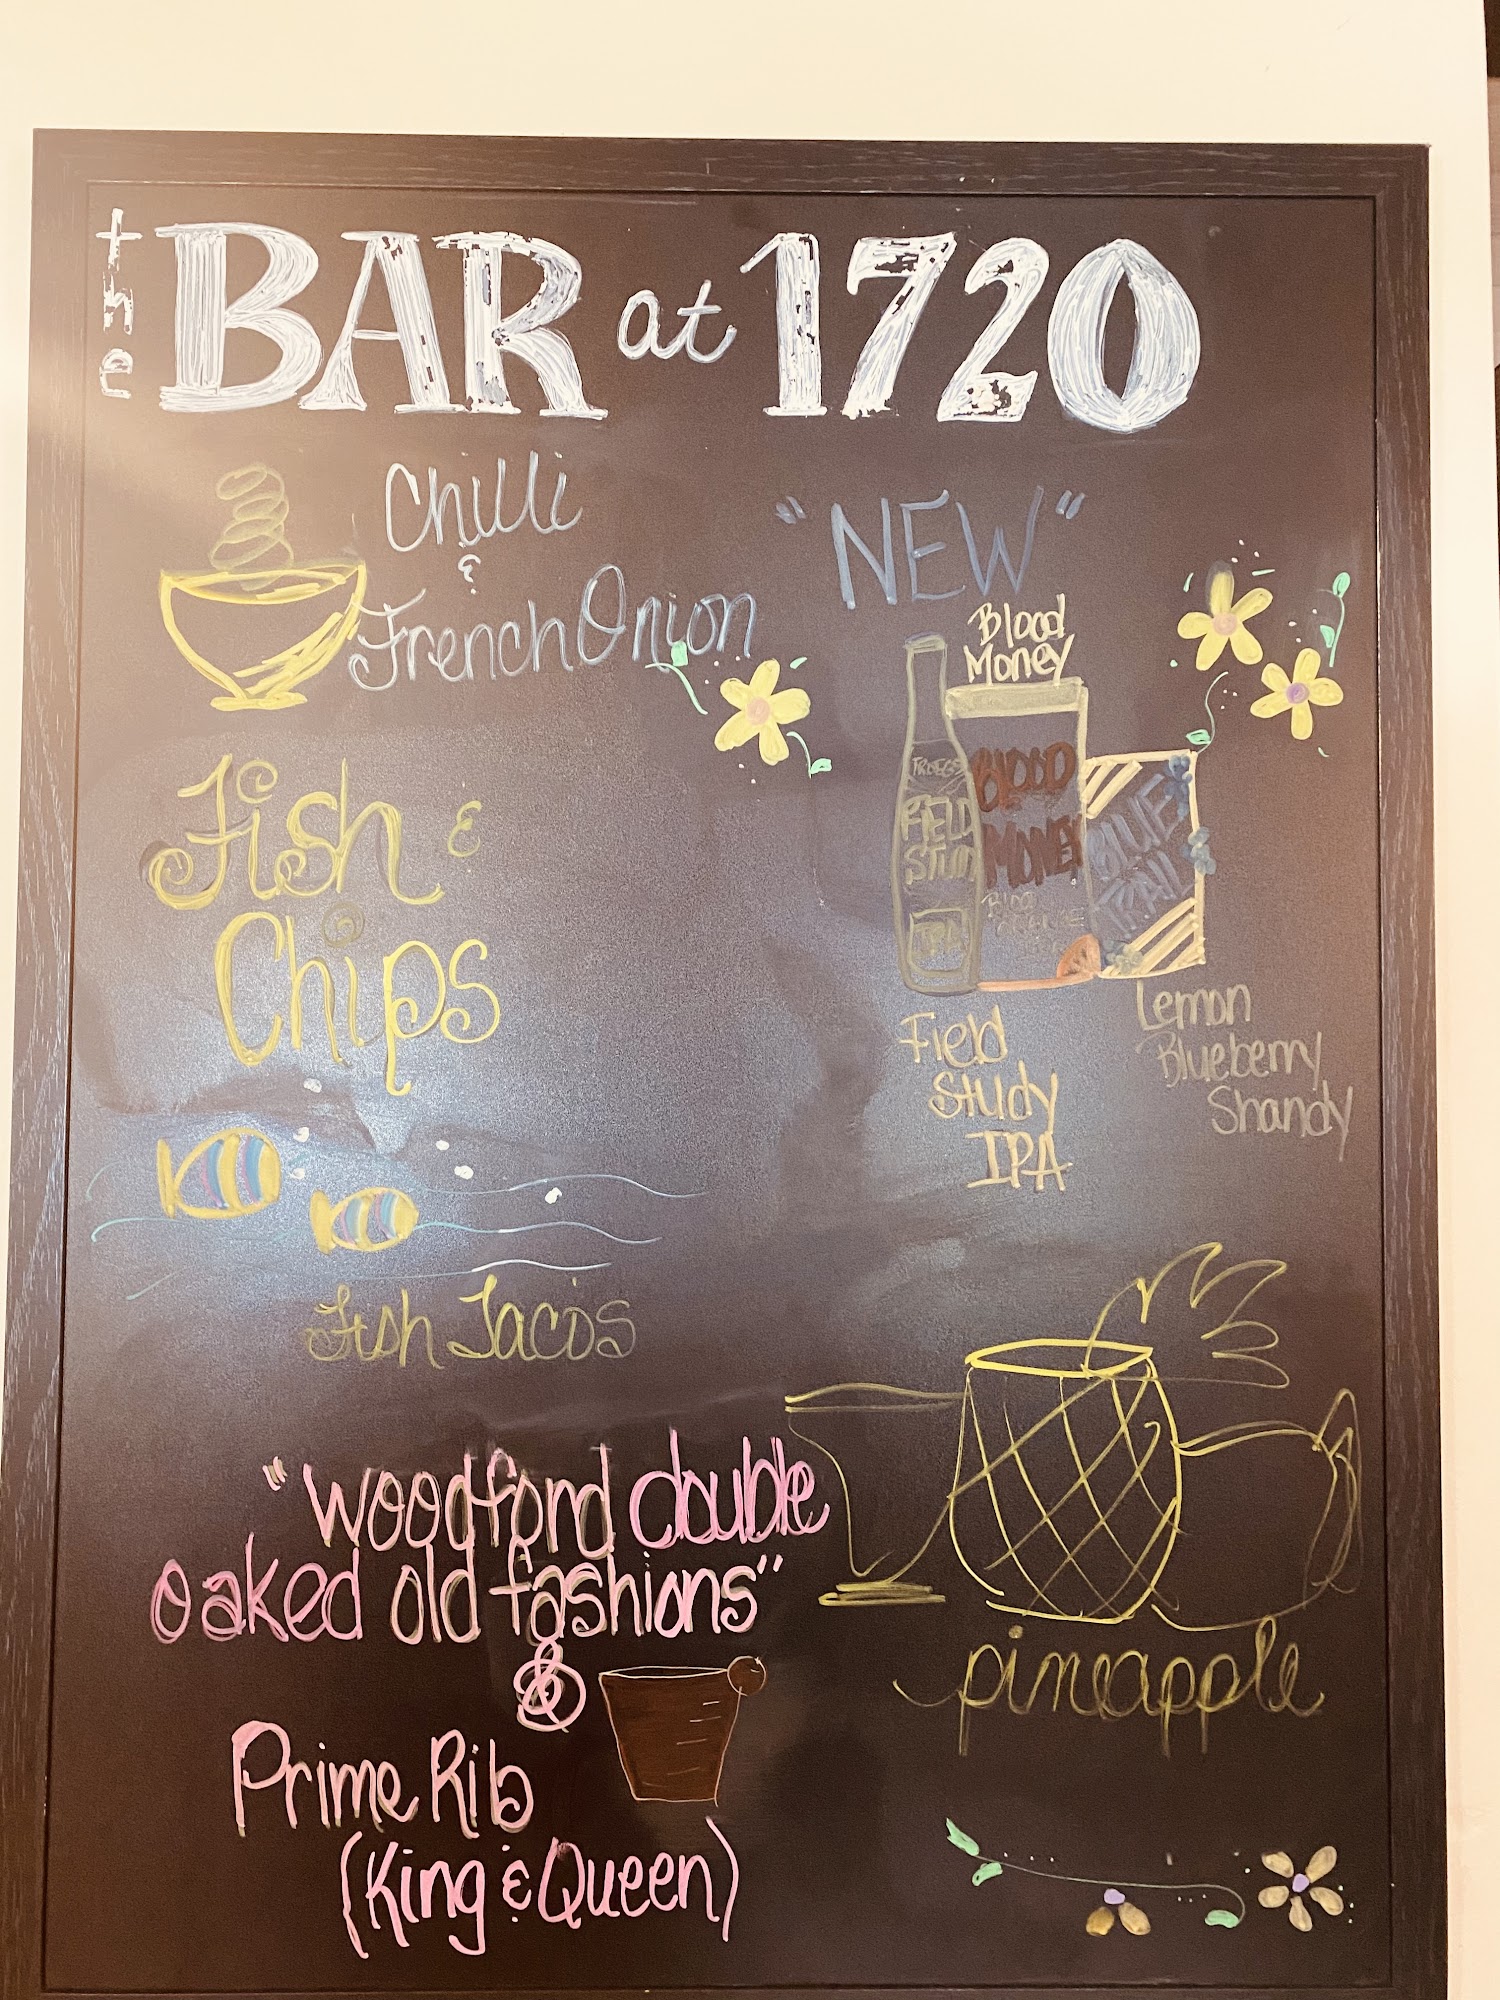 the BAR at 1720
Chilli
&
French Onion
Fish &
Chips
Fish Tacos
"NEW"
Blood
Money
TROEGS
FIELD
STUD
IPA
BLOOD
MONEY
BLOOD
ORANGE
BLUE
TRAIL
Field
Study
IPA
Lemon
Blueberry
Shandy
"woodford double
oaked old fashions"
&
Prime Rib
(King & Queen)
pineapple